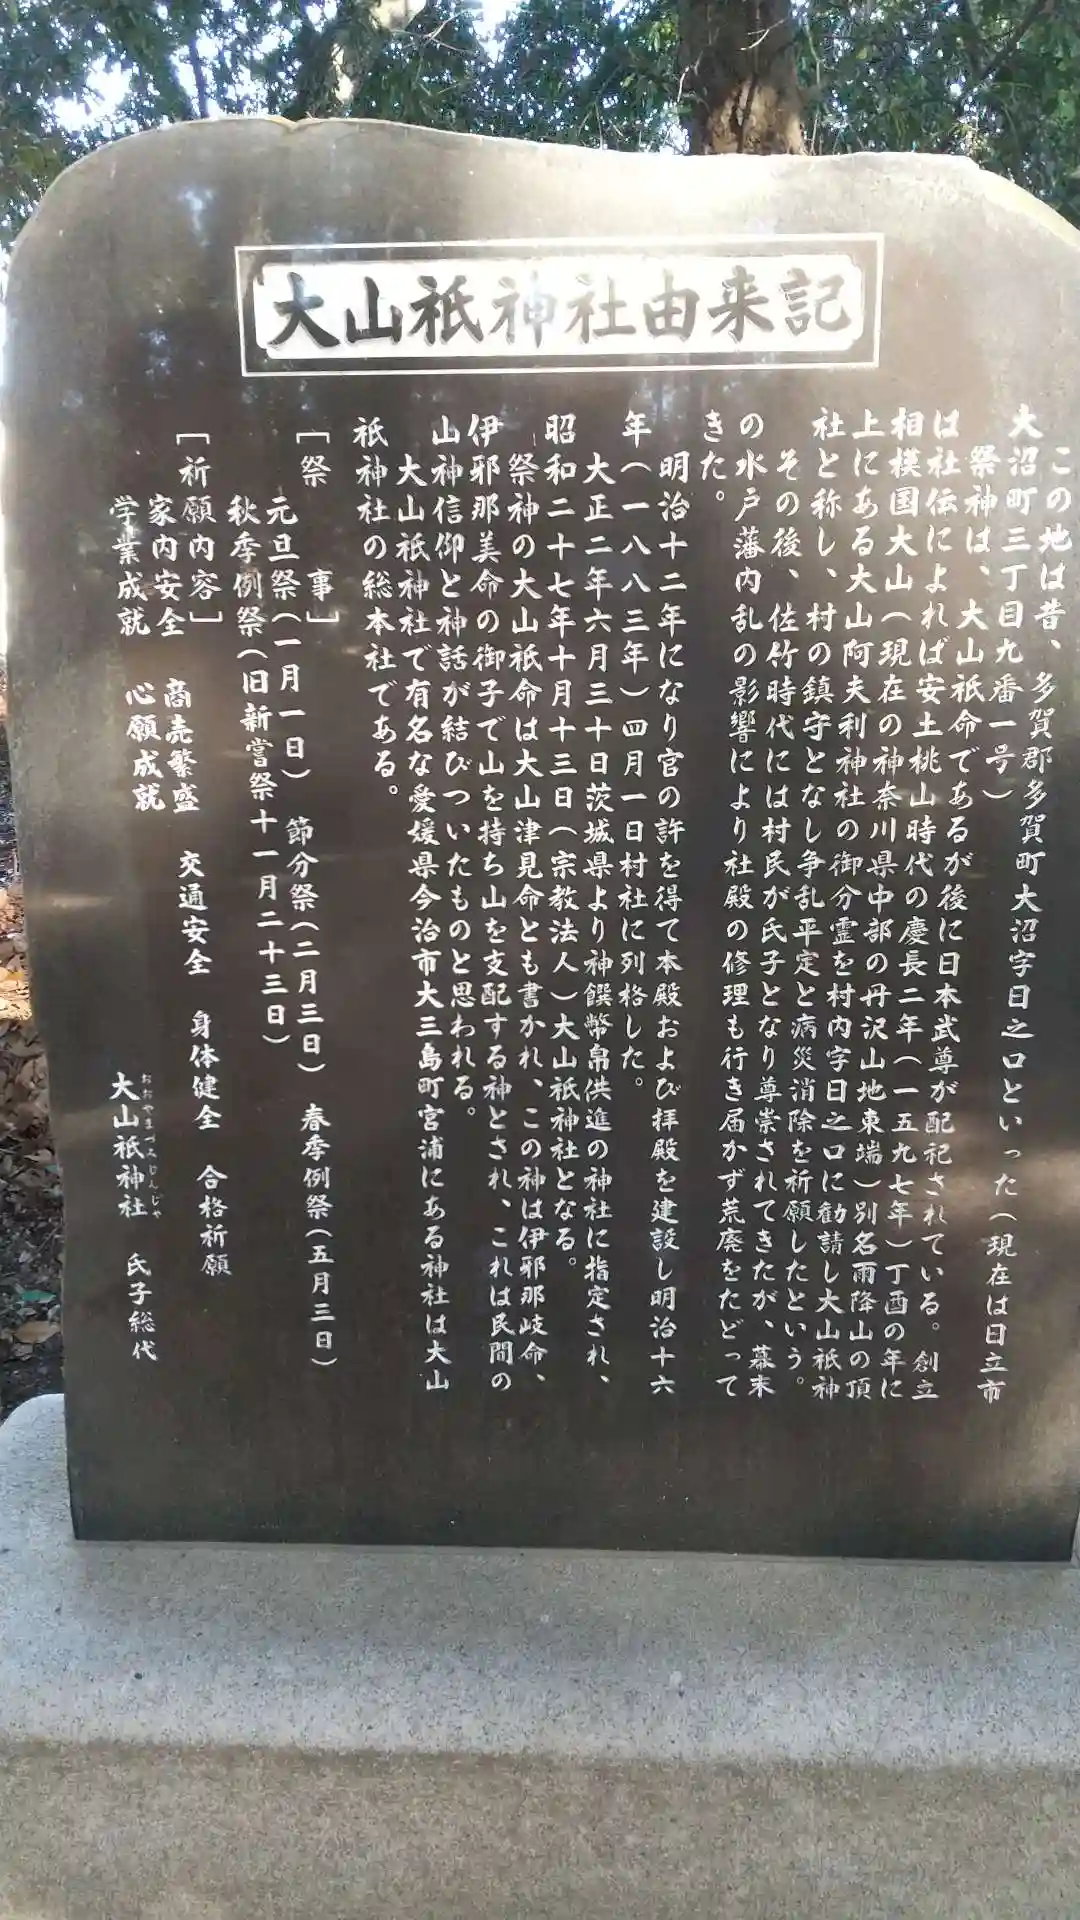 大山祇神社由来記
この地は昔、多賀郡多賀町大沼字日之口といった(現在は日立市
大沼町三丁目九番一号)
祭神は、大山祇命であるが後に日本武尊が配祀されている。創立
は社伝によれば安土桃山時代の慶長二年(一五九七年)丁酉の年に
相模国大山(現在の神奈川県中部の丹沢山地東端)別名雨降山の頂
上にある大山阿夫利神社の御分霊を村内字日之口に勧請し大山祇神
社と称し、村の鎮守となし争乱平定と病災消除を祈願したという。
その後、佐竹時代には村民が氏子となり尊崇されてきたが、幕末
の水戸藩内乱の影響により社殿の修理も行き届かず荒廃をたどって
きた。
明治十二年になり官の許を得て本殿および拝殿を建設し明治十六
年(一八八三年)四月一日村社に列格した。
大正二年六月三十日茨城県より神饌幣帛供進の神社に指定され、
昭和二十七年十月十三日(宗教法人)大山祇神社となる。
祭神の大山祇命は大山津見命とも書かれ、この神は伊邪那岐命、
伊邪那美命の御子で山を持ち山を支配する神とされ、これは民間の
山神信仰と神話が結びついたものと思われる。
大山祇神社で有名な愛媛県今治市大三島町宮浦にある神社は大山
祇神社の総本社である。
[祭 事]
元旦祭(一月一日) 節分祭(二月三日) 春季例祭(五月三日)
秋季例祭(旧新嘗祭十一月二十三日)
[祈願内容]
家内安全 商売繁盛 交通安全 身体健全 合格祈願
学業成就 心願成就
おおやまづみじんじゃ
大山祇神社 氏子総代